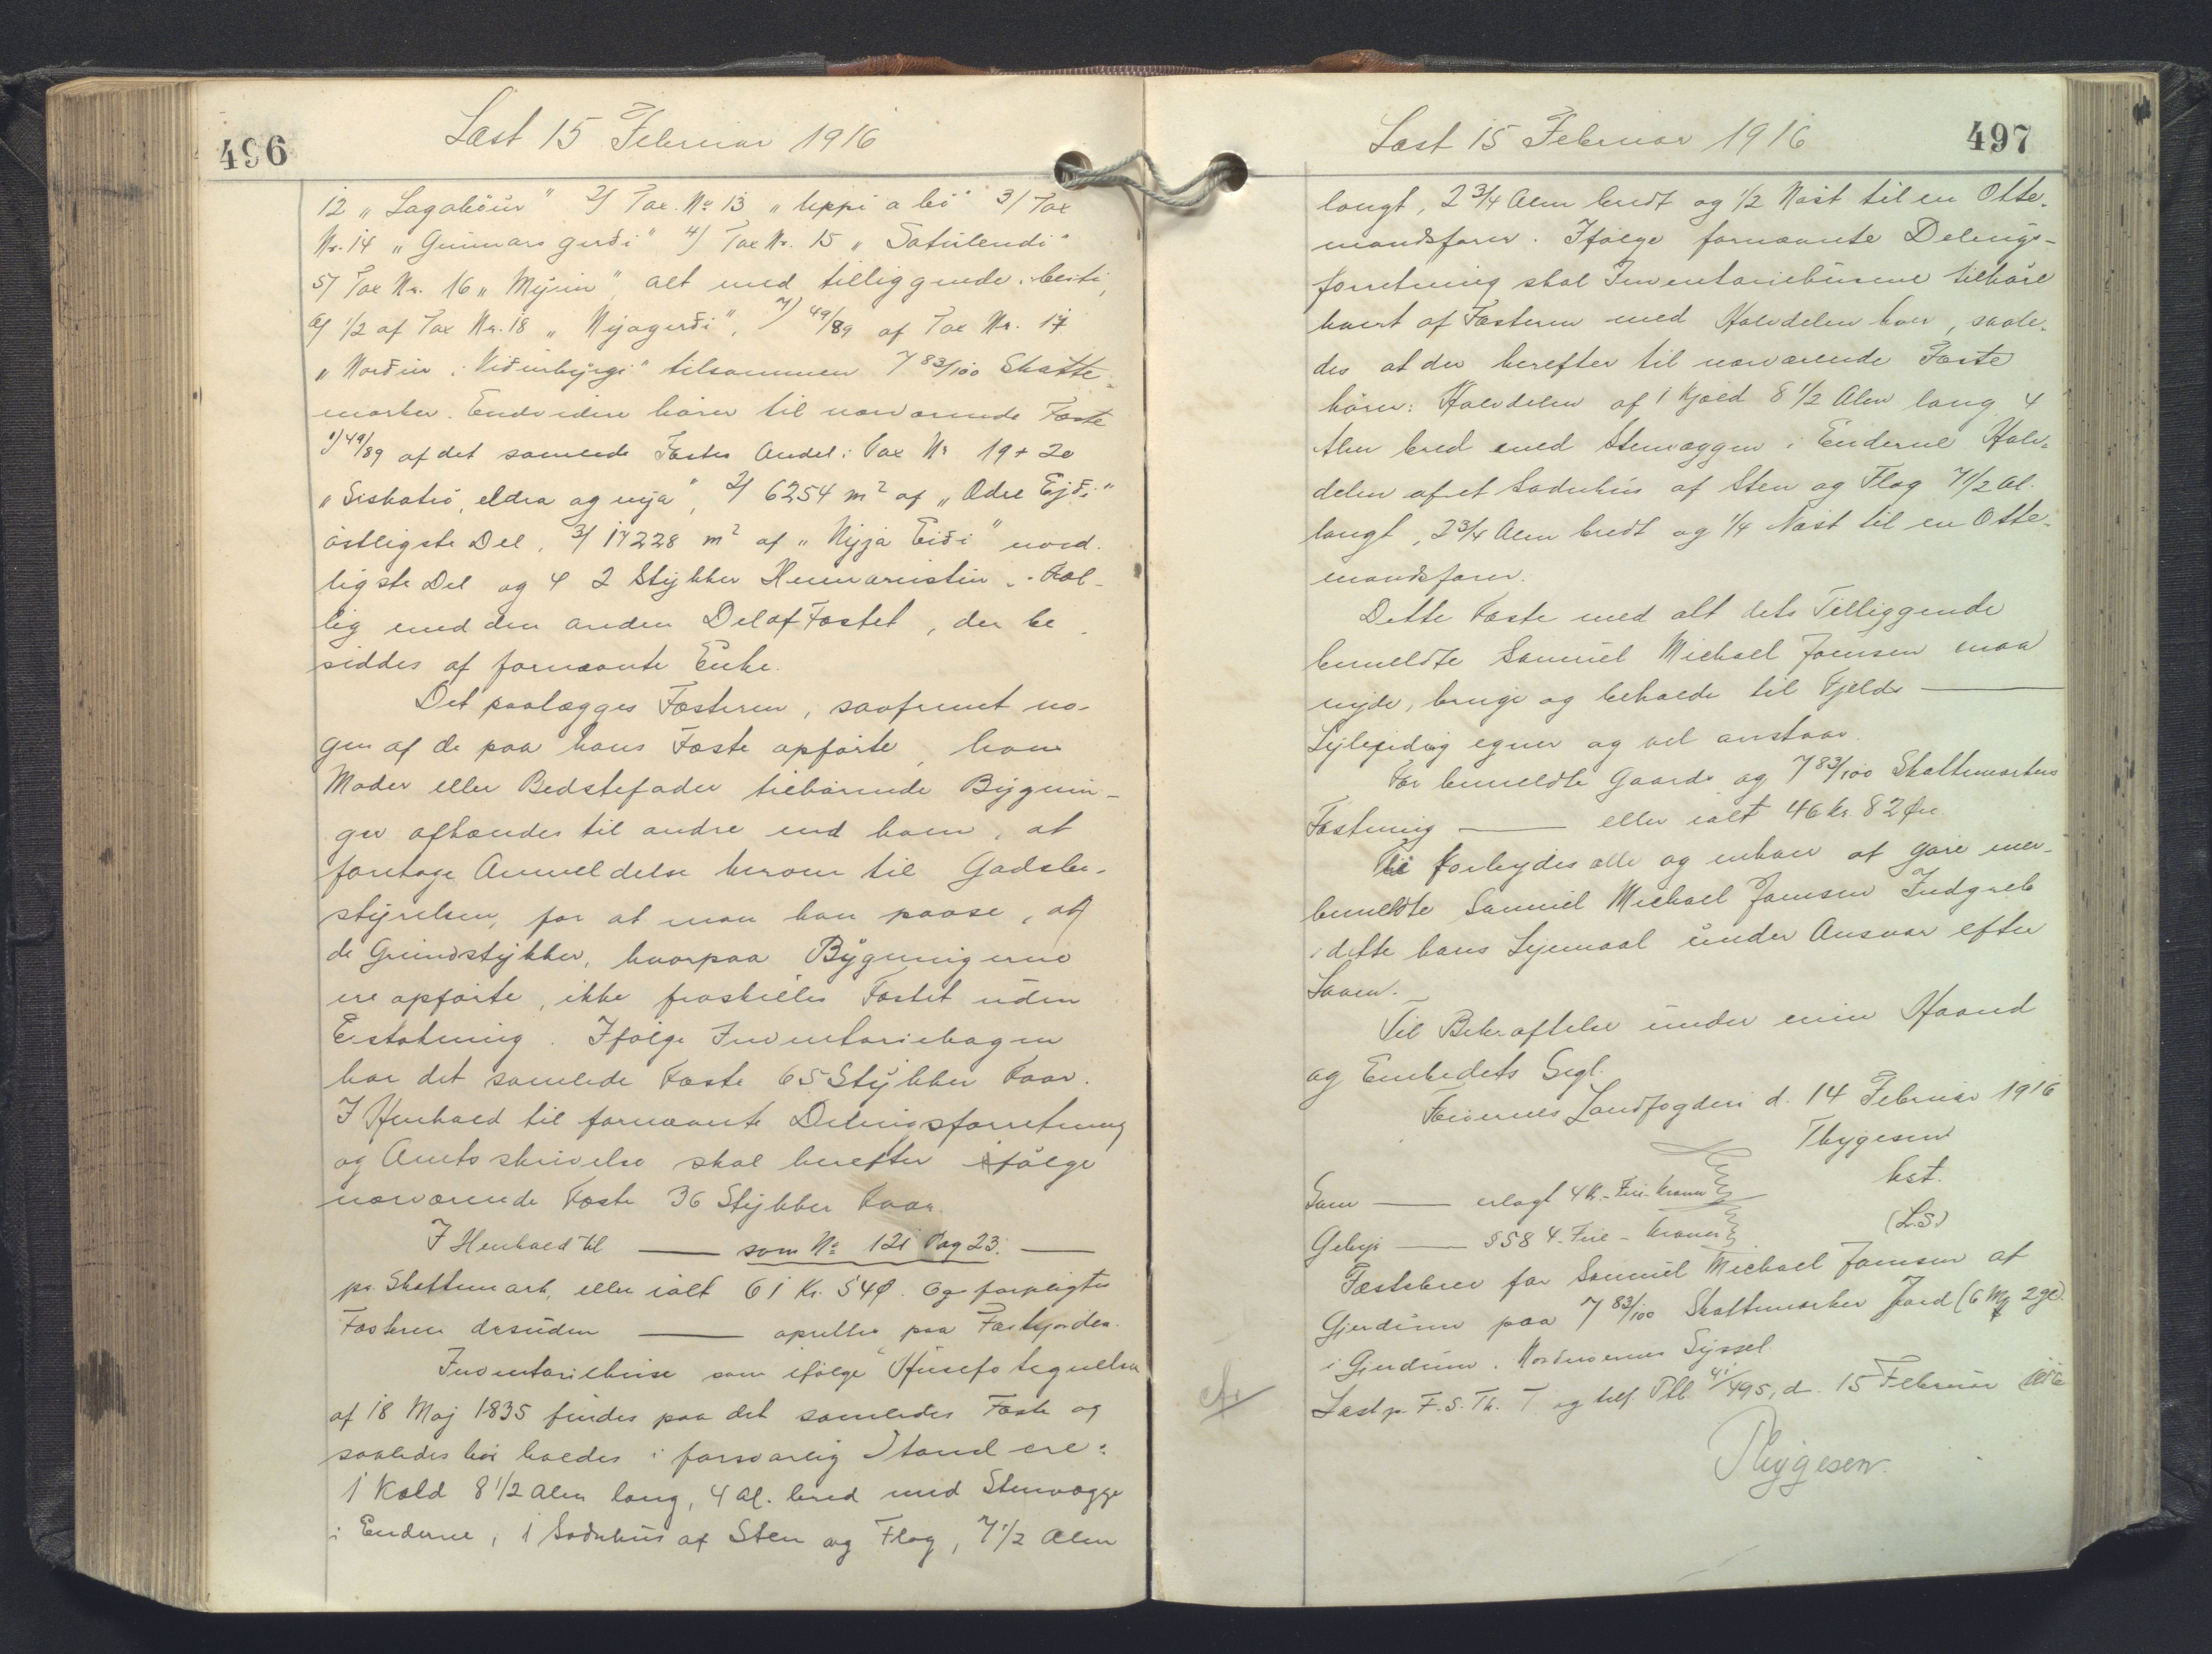 496
Læst 15 Februar 1916
12 „Lagabøur" 2/ Tax. No 13 „uppi a bø" 3/ Tax
Nr. 14 „Gunnars gerði" 4) Tax Nr. 15 „Satulendi"
5/ Tax Nr. 16 „Mýrin", alt med tilliggende i beiti,
6/ 1/2 af Tax Nr. 18 „Nýagerði", 7) 49/89 af Tax Nr. 17
„Norðuri Viðurbyrgi" tilsammen 7 83/100 Skatte-
marker. Endvidere hører til nærværende Fæste
1) 49/89 af det samlede Fæstes Andel i Tax Nr 19 + 20
„Siskatrø, eldra og nyja", 2/ 6254 m² af „Ødre Ejði"
østligste Del, 3/ 17228 m² af „Nyja Eiði" nord-
ligste Del og 4 2 Stykker
lig med den anden Del af Fæstet, der be-
siddes af fornævnte Enke.
Det paalægges Fæsteren, saafremt no-
gen af de paa hans Fæste opførte, hans
Moder eller Bedstefader tilhørende Bygnin-
ger afhændes til andre end ham, at
foretage Anmeldelse herom til Godsbe-
styrelsen, for at man kan paase, at
de Grundstykker, hvorpaa Bygningerne
ere opførte, ikke fraskilles Fæstet uden
Erstatning. Ifølge Inventariebogen
har det samlede Fæste 65 Stykker Faar.
I Henhold til fornævnte Delingsforretning
og Amtsskrivelse skal herefter følge
nærværende Fæste 36 Stykker Faar.
I Henhold til — som No 121 Pag 23. —
pr. Skattemark, eller ialt 61 Kr. 54 Ø. Og forpligtes
Fæsteren desuden — oprettes paa Fæstejorden.
Inventariehuse som ifølge Husefortegnelsen
af 18 Maj 1835 findes paa det samledes Fæste og
saaledes bør holdes i forsvarlig Stand ere:
1 Kold 8 1/2 Alen lang, 4 Al. bred med Stenvægge
i Enderne, 1 Sodnhus af Sten og Flag, 7 1/2 Alen
497
Læst 15 Februar 1916
langt, 2 3/4 Alen bredt og 1/2 Nøst til en Otte-
mandsfarer. Ifølge fornævnte Delings-
forretning skal Inventariehusene tilhøre
hvert af Fæsterne med Halvdelen hver, saale-
des at der herefter til nærværende Fæste
hører: Halvdelen af 1 Kjold 8 1/2 Alen lang 4
Alen bred med Stenvæggen i Enderne Halv-
delen af et Sodnhus af Sten og Flag 7 1/2 Al.
langt, 2 3/4 Alen bredt og 1/4 Nøst til en Otte-
mandsfarer.
Dette Fæste med alt dets Tilliggende
bemeldte Samuel Michael Joensen maa
nyde, bruge og beholde til Fjelds —
Lejlejidig egner og vel anstaar.
For bemeldte Gaards og 7 83/100 Skattemarkers
Fæstning — eller ialt 46 Kr. 82 Øre
Thi forbydes alle og enhver at gøre mer-
bemeldte Samuel Michael Joensen Indgreb
i dette hans Lejemaal under Ansvar efter
Loven.
Til Bekræftelse under min Haand
og Embedets Segl.
Færøernes Landfogderi d. 14 Februar 1916
Thygesen
kst.
(L.S.)
Gam — erlagt 4 Kr. - Fire Kroner
Gebyr — § 58 4 - Fire - Kroner
Fæstebrev for Samuel Michael Joensen af
Gjerdum paa 7 83/100 Skattemarker Jord (6 Mk 2 gl)
i Gjerdum. Norderøernes Syssel
Læst p. F. S. Th. T og tilf. Ptb. 41/495, d. 15 Februar 1916
Thygesen